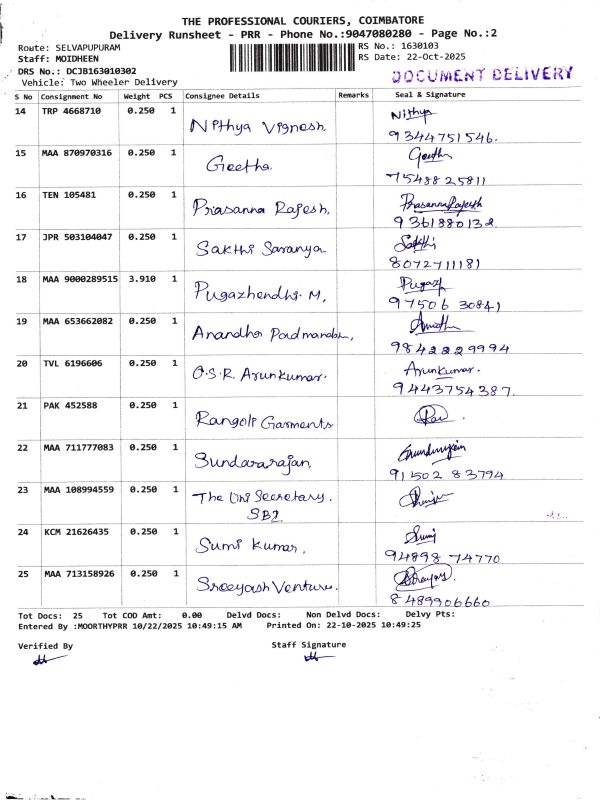 THE PROFESSIONAL COURIERS, COIMBATORE
Delivery Runsheet - PRR - Phone No.:9047080280 - Page No.:2
Route: SELVAPUPURAM RS No.: 1630103
Staff: MOIDHEEN RS Date: 22-Oct-2025
DRS No.: DCJB163010302 DOCUMENT DELIVERY
Vehicle: Two Wheeler Delivery
S No Consignment No Weight PCS Consignee Details Remarks Seal & Signature
14 TRP 4668710 0.250 1 Nithya Vignesh. Nithya
9344751546.
15 MAA 870970316 0.250 1 Geetha. Geetha
75488 25811
16 TEN 105481 0.250 1 Prasanna Rajesh. PrasannaRajesh
9361880132
17 JPR 503104047 0.250 1 Sakthi Saranya Sakthi
8072711181
18 MAA 9000289515 3.910 1 Pugazhendhi. M. Pugazh
97506 30841
19 MAA 653662082 0.250 1 Anandha Padmanabhan.
9842229994
20 TVL 6196606 0.250 1 O.S.R. Arunkumar. Arunkumar.
9443754387.
21 PAK 452588 0.250 1 Rangoli Garments
22 MAA 711777083 0.250 1 Sundararajan.
91502 83794
23 MAA 108994559 0.250 1 The Secretary.
SBI
24 KCM 21626435 0.250 1 Sumi Kumar. Sumi
94898 74770
25 MAA 713158926 0.250 1 Sreeyash Venture.
8489906660
Tot Docs: 25 Tot COD Amt: 0.00 Delvd Docs: Non Delvd Docs: Delvy Pts:
Entered By :MOORTHYPRR 10/22/2025 10:49:15 AM Printed On: 22-10-2025 10:49:25
Verified By Staff Signature